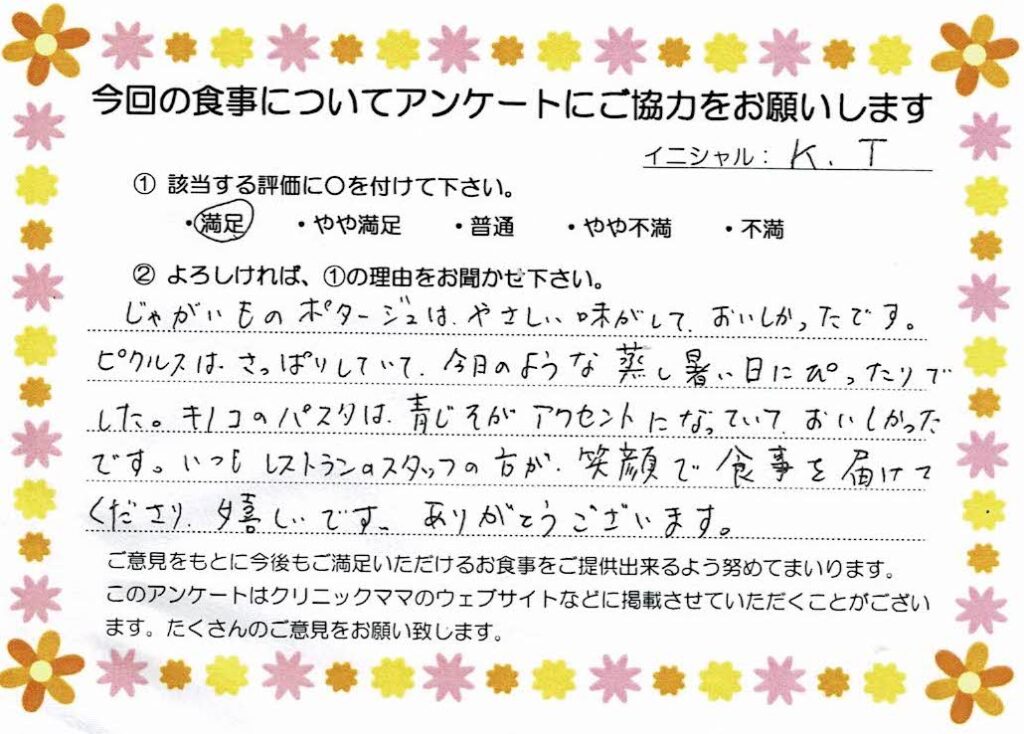 今回の食事についてアンケートにご協力をお願いします
イニシャル: K.T
① 該当する評価に○を付けて下さい。
・満足 ・やや満足 ・普通 ・やや不満 ・不満
② よろしければ、①の理由をお聞かせ下さい。
じゃがいものポタージュは、やさしい味がして、おいしかったです。
ピクルスは、さっぱりしていて、今日のような蒸し暑い日にぴったりで
した。キノコのパスタは、青じそがアクセントになっていて、おいしかった
です。いつもレストランのスタッフの方が、笑顔で食事を届けて
くださり、嬉しいです。ありがとうございます。
ご意見をもとに今後もご満足いただけるお食事をご提供出来るよう努めてまいります。
このアンケートはクリニックママのウェブサイトなどに掲載させていただくことがござい
ます。たくさんのご意見をお願い致します。